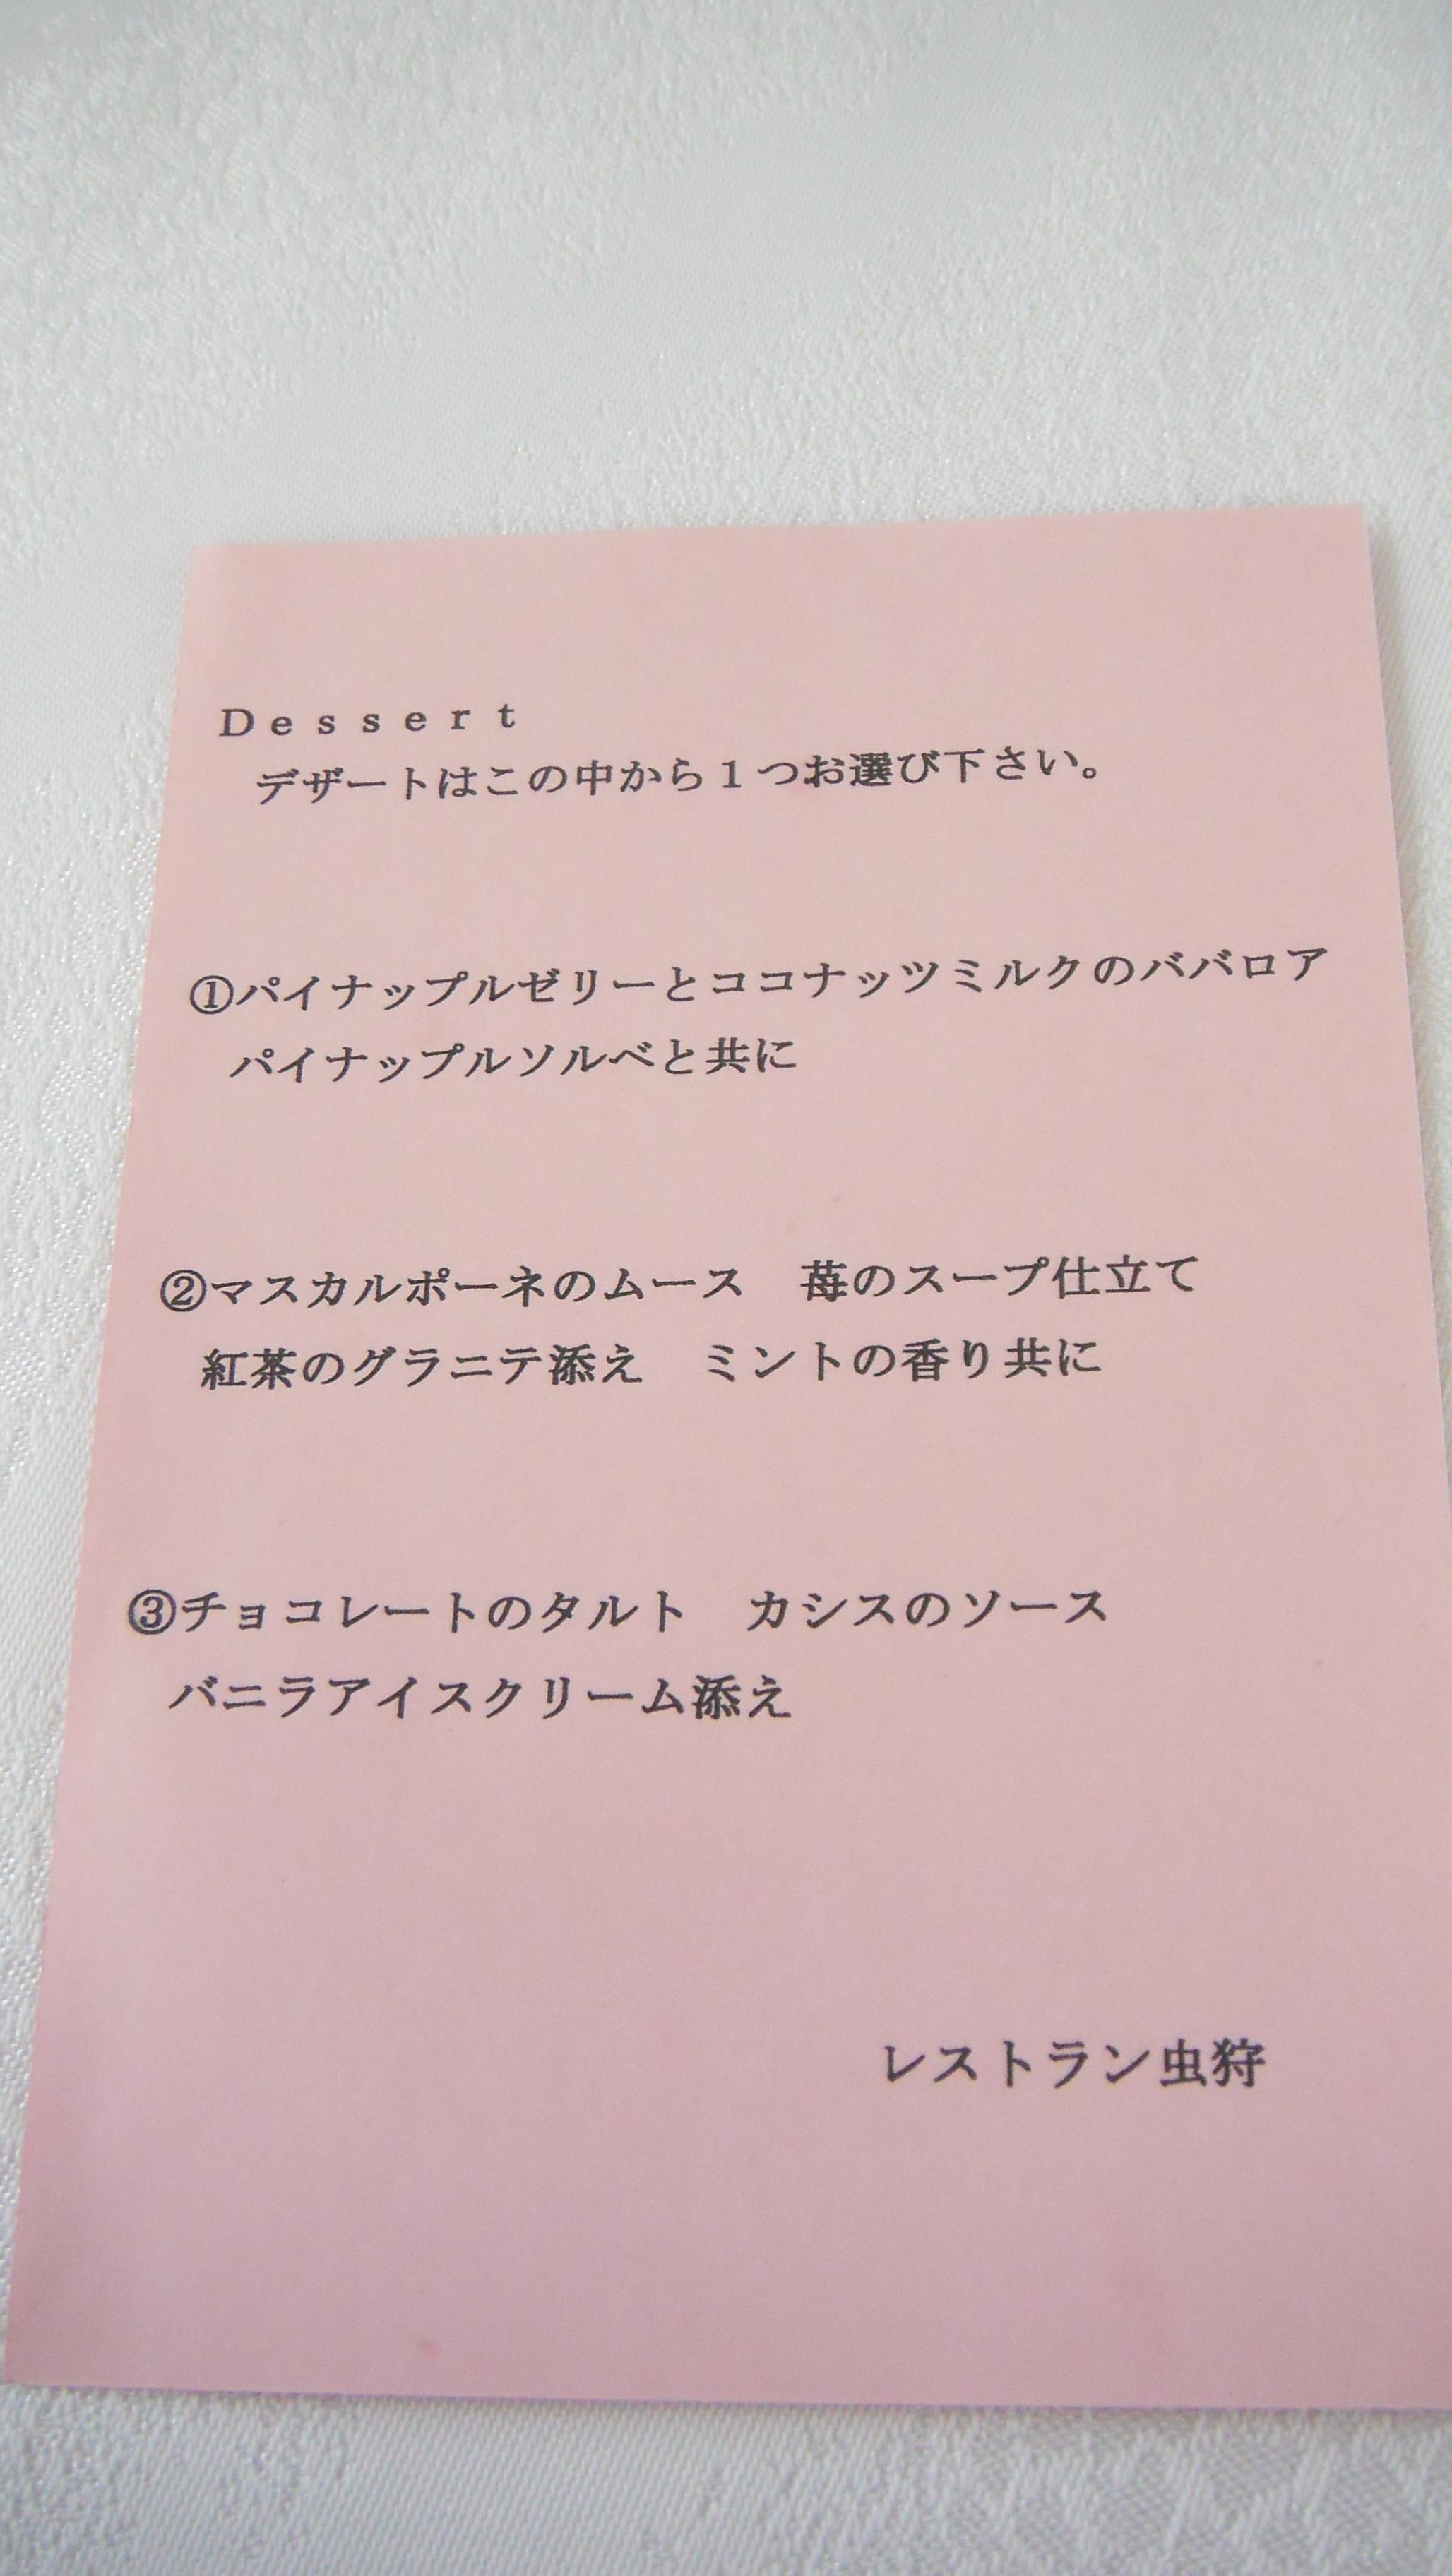 Dessert
デザートはこの中から1つお選び下さい。
①パイナップルゼリーとココナッツミルクのババロア
パイナップルソルベと共に
②マスカルポーネのムース　苺のスープ仕立て
紅茶のグラニテ添え　ミントの香り共に
③チョコレートのタルト　カシスのソース
バニラアイスクリーム添え
レストラン虫狩